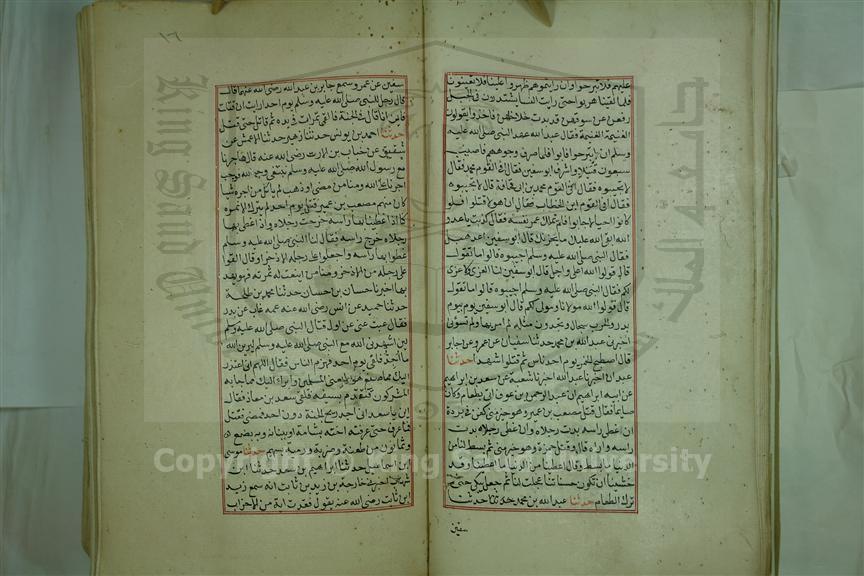 عليهم فلا تبرحوا وان رايتموهم ظهروا علينا فلا تعينونا
فلما لقينا هربوا حتى رايت النسا يشتددن في الجبل
رفعن عن سوقهن قد بدت خلاخلهن فاخذوا يقولون
الغنيمة الغنيمة فقال عبد الله عهد النبي صلى الله عليه
وسلم ان لا تبرحوا فابوا فلما ابوا صرف وجوههم فاصيب
سبعون قتيلا واشرف ابو سفين فقال افي القوم محمد فقال
لا تجيبوه فقال افي القوم محمد ابن ابي قحافة قال لا تجيبوه
فقال افي القوم ابن الخطاب فقال ان هولا قتلوا فلو
كانوا احيا لاجابوا فلم يملك عمر نفسه فقال كذبت يا عدو
الله ابقى الله عليك ما يحزنك قال ابو سفين اعل هبل
فقال النبي صلى الله عليه وسلم اجيبوه قالوا ما نقول
قال قولوا الله اعلى واجل قال ابو سفين لنا العزى ولا عزى
لكم فقال النبي صلى الله عليه وسلم اجيبوه قالوا ما نقول
قال قولوا الله مولانا ولا مولى لكم قال ابو سفين يوم بيوم
بدر والحرب سجال وتجدون مثلة لم امر بها ولم تسوني
اخبرني عبد الله بن محمد حدثنا سفيان عن عمرو عن جابر
قال اصطبح الخمر يوم احد ناس ثم قتلوا شهدا حدثنا
عبدان اخبرنا عبد الله اخبرنا شعبة عن سعد بن ابراهيم
عن ابيه ابراهيم ان عبد الرحمن بن عوف اتي بطعام وكان
صايما فقال قتل مصعب بن عمير وهو خير مني كفن في بردة
ان غطي راسه بدت رجلاه وان غطي رجلاه بدت
راسه واراه قال وقتل حمزة وهو خير مني ثم بسط لنا من
الدنيا ما بسط او قال اعطينا من الدنيا ما اعطينا وقد
خشينا ان تكون حسناتنا عجلت لنا ثم جعل يبكي حتى
ترك الطعام حدثنا عبد الله بن محمد حدثنا
سفين
١٦
سفين عن عمرو سمع جابر بن عبد الله رضي الله عنهما قال
قال رجل للنبي صلى الله عليه وسلم يوم احد ارايت ان قتلت
فاين انا قال في الجنة فالقى تمرات في يده ثم قاتل حتى قتل
حدثنا احمد بن يونس حدثنا زهير حدثنا الاعمش عن
شقيق عن خباب بن الارت رضي الله عنه قال هاجرنا
مع رسول الله صلى الله عليه وسلم نبتغي وجه الله فوجب
اجرنا على الله ومنا من مضى او ذهب لم ياكل من اجره شيا
كان منهم مصعب بن عمير قتل يوم احد لم يترك الا نمرة
كنا اذا غطينا بها راسه خرجت رجلاه واذا غطي بها
رجلاه خرج راسه فقال لنا النبي صلى الله عليه وسلم
غطوا بها راسه واجعلوا على رجله الاذخر او قال القوا
على رجله من الاذخر ومنا من اينعت له ثمرته فهو يهد
بها اخبرنا حسان بن حسان حدثنا محمد بن طلحة
حدثنا حميد عن انس رضي الله عنه ان عمه غاب عن بدر
فقال غبت عن اول قتال النبي صلى الله عليه وسلم
لين اشهدني الله مع النبي صلى الله عليه وسلم ليرين الله
ما اجد فلقي يوم احد فهزم الناس فقال اللهم اني اعتذر
اليك مما صنع هولا يعني المسلمين وابرا اليك مما جا به
المشركون فتقدم بسيفه فلقي سعد بن معاذ فقال
اين يا سعد اني اجد ريح الجنة دون احد فمضى فقتل
فما عرف حتى عرفته اخته بشامة او ببنانه وبه بضع
وثمانون من طعنة وضربة ورمية بسهم حدثنا موسى
ابن اسماعيل حدثنا ابراهيم بن سعد حدثنا ابن
شهاب اخبرني خارجة بن زيد بن ثابت انه سمع زيد
ابن ثابت رضي الله عنه يقول فقدت اية من الاحزاب
جامعة الملك
King Saud Un
Copyright © King Saud University